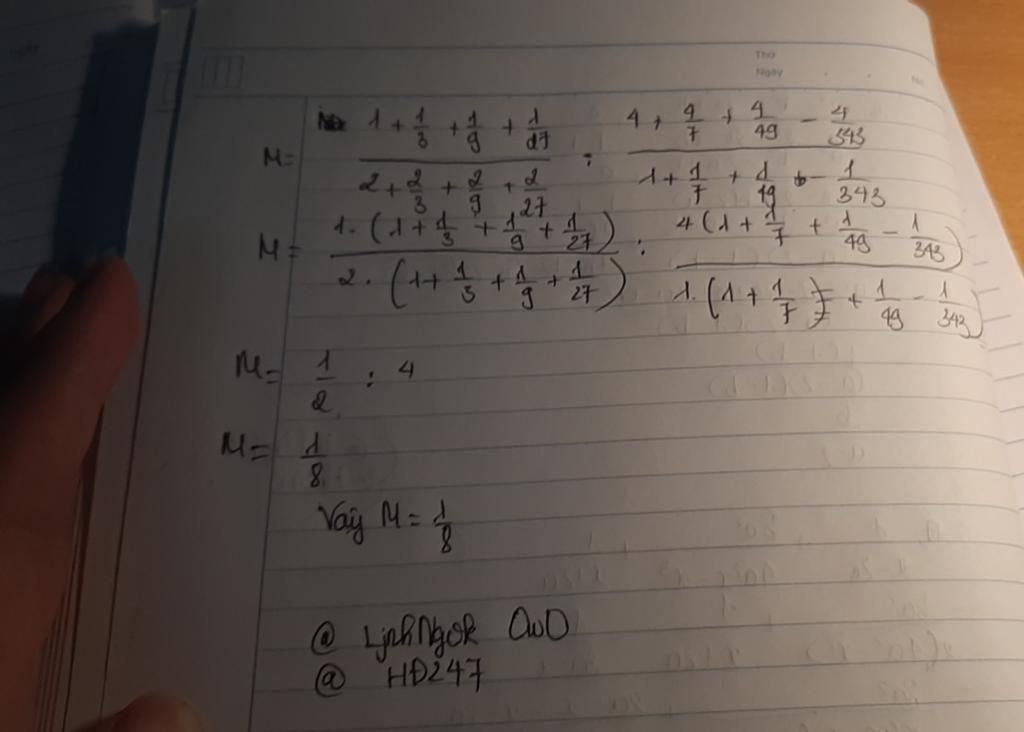 Thứ
Ngày . . No.
M= 1 + 1/3 + 1/9 + 1/27 / 2 + 2/3 + 2/9 + 2/27 : 4 + 4/7 + 4/49 - 4/343 / 1 + 1/7 + 1/49 - 1/343
M= 1. (1 + 1/3 + 1/9 + 1/27) / 2. (1 + 1/3 + 1/9 + 1/27) : 4 (1 + 1/7 + 1/49 - 1/343) / 1. (1 + 1/7 + 1/49 - 1/343)
M= 1/2 : 4
M= 1/8
Vậy M = 1/8
@ LịnhNgok OwO
@ HĐ247